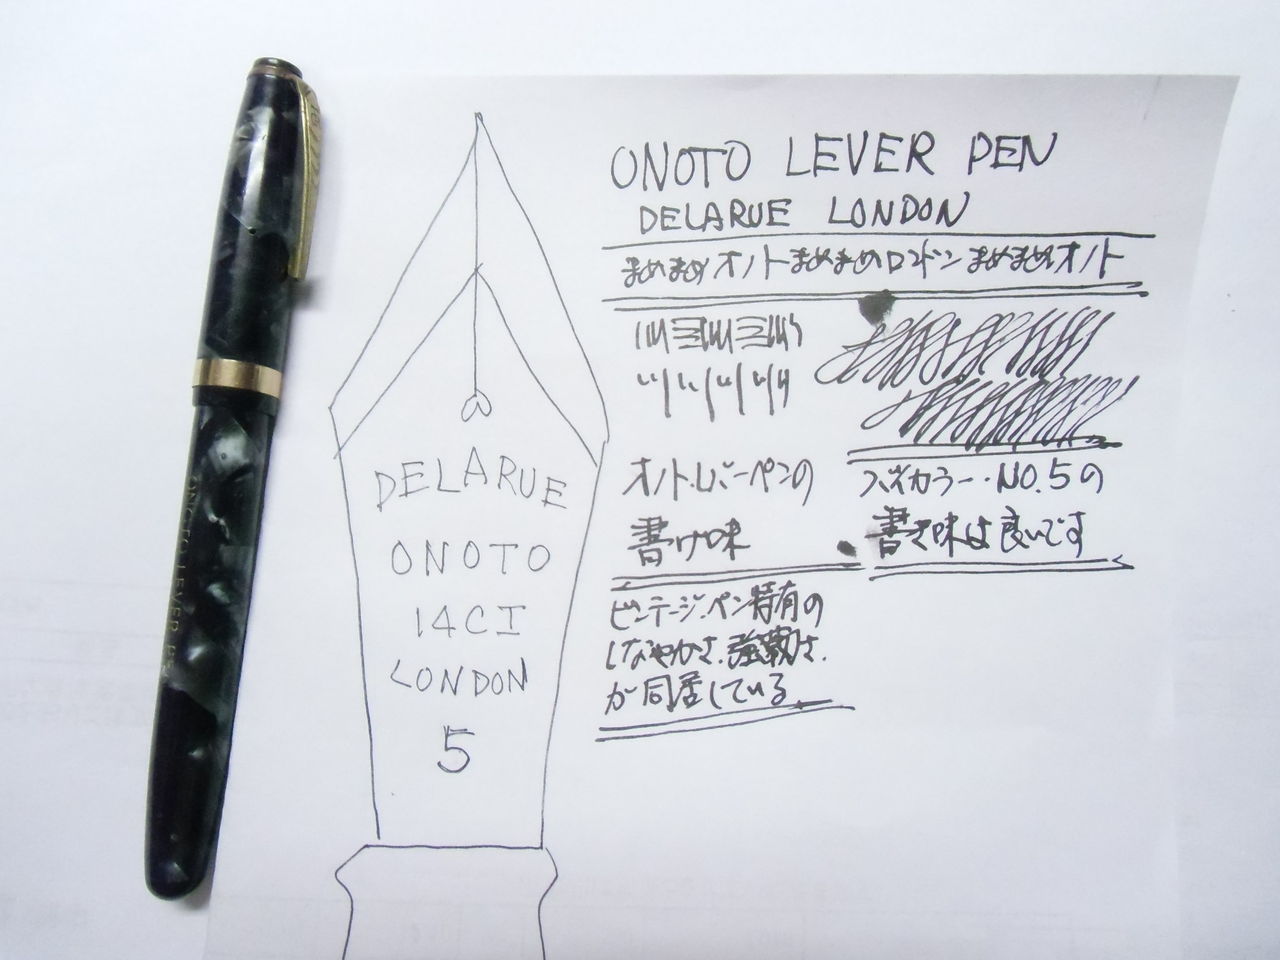 ONOTO LEVER PEN
DELARUE LONDON
まめまめオノトまめまめロンドンまめまめオノト
オノト.レバーペンの
書け味
バイカラー・NO.5の
書き味は良いです
ビンテージ.ペン特有の
しなやかさ.強靭さ.
が同居している
DELARUE
ONOTO
14CT
LONDON
5
ONOTO LEVER PEN